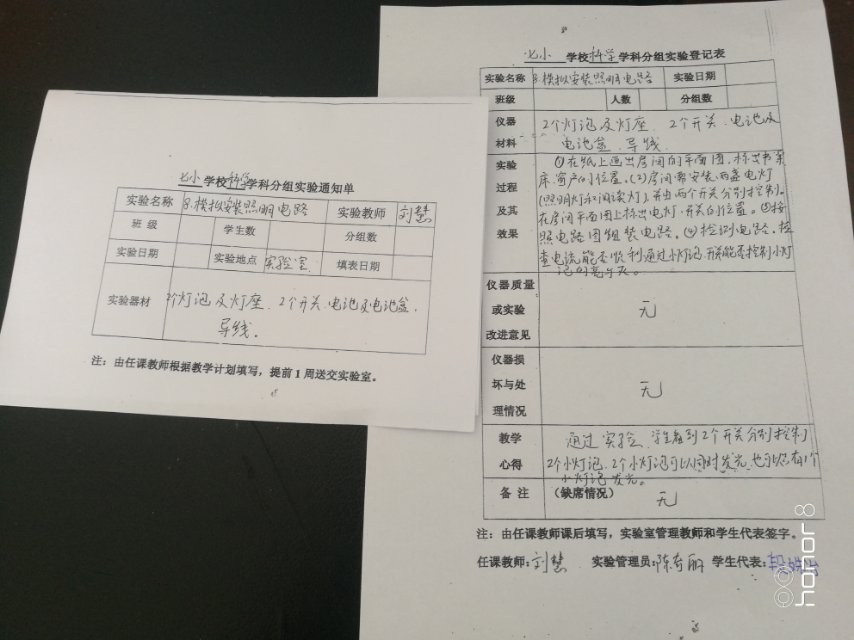 七小 学校科学学科分组实验通知单
实验名称 8.模拟安装照明电路 实验教师 刘慧
班级 学生数 分组数
实验日期 实验地点 实验室 填表日期
实验器材 2个灯泡及灯座、2个开关、电池及电池盒、
导线。
注：由任课教师根据教学计划填写，提前1周送交实验室。
七小 学校科学学科分组实验登记表
实验名称 8.模拟安装照明电路 实验日期
班级 人数 分组数
仪器材料
2个灯泡及灯座、2个开关、电池及
电池盒、导线
实验过程及其效果
①在纸上画出房间的平面图,标出书桌、
床、窗户的位置。(2)房间需安装两盏电灯
(照明灯和阅读灯),并由两个开关分别控制。
在房间平面图上标出电灯、开关的位置。③按
照电路图组装电路。(4)检测电路。检
查电流能否顺利通过小灯泡,开关能否控制小灯
泡的亮与灭。
仪器质量
或实验
改进意见
无
仪器损
坏与处
理情况
无
教学心得
通过实验,学生看到2个开关分别控制
2个小灯泡,2个小灯泡可以同时发光,也可以只有1个
小灯泡发光。
备注 （缺席情况） 无
注：由任课教师课后填写，实验室管理教师和学生代表签字。
任课教师:刘慧 实验管理员: 学生代表:
honor 8